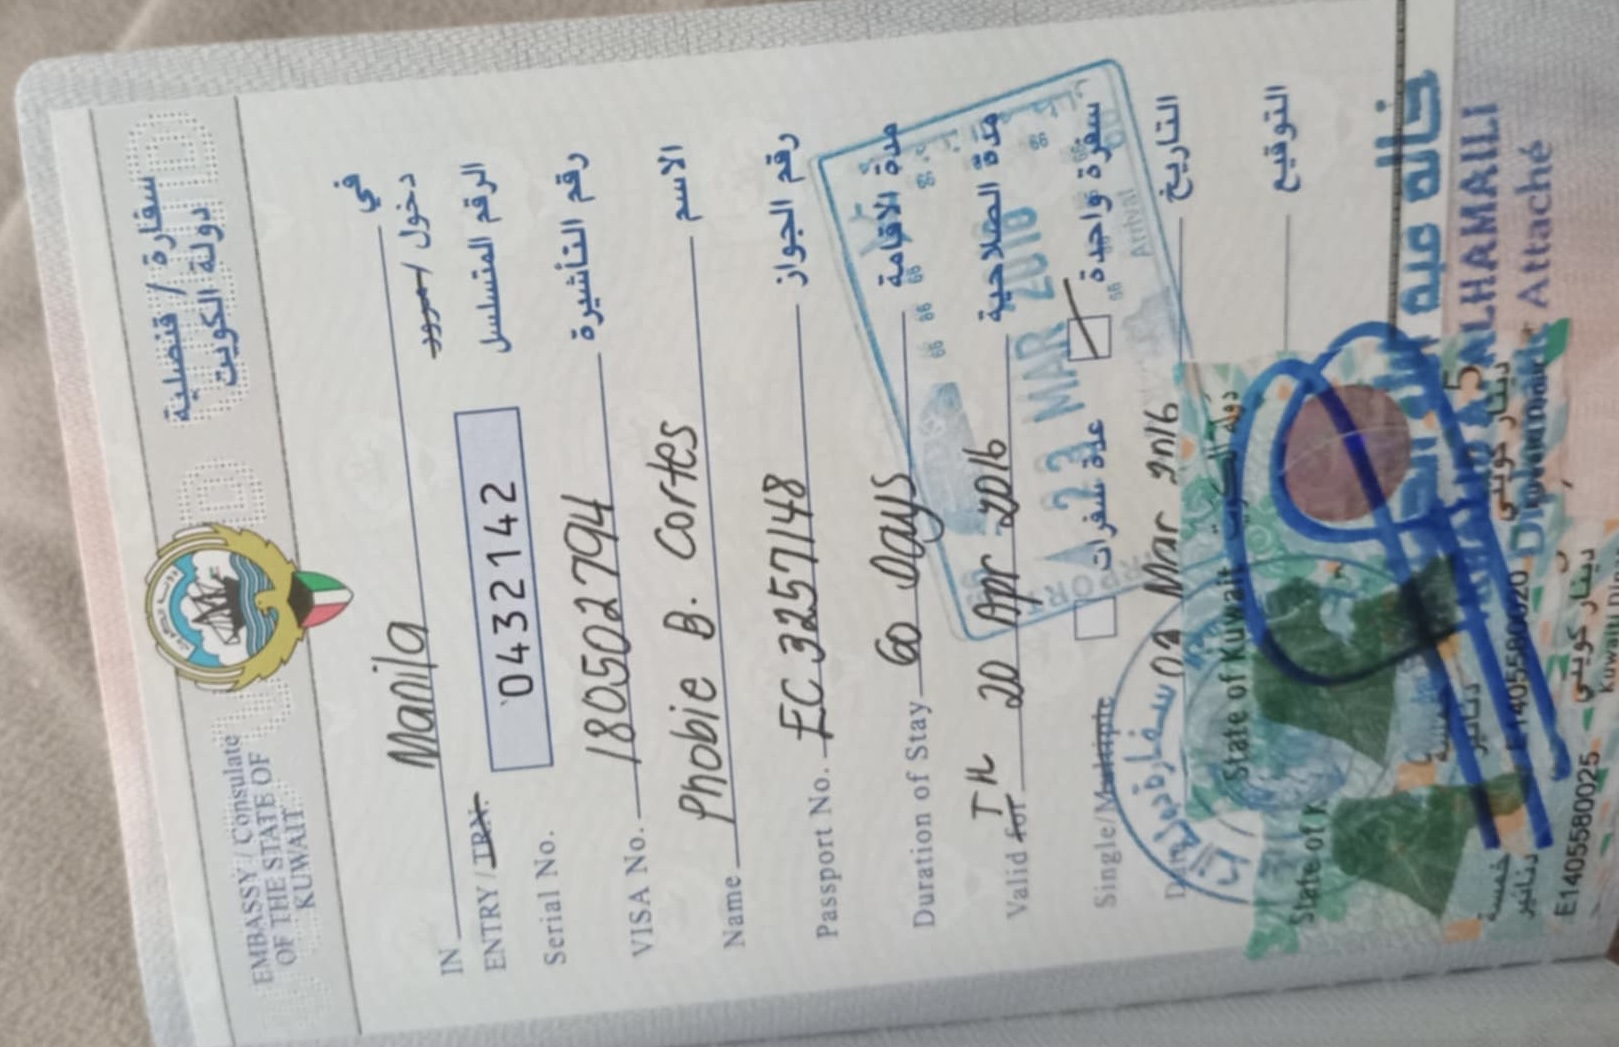 EMBASSY / Consulate
OF THE STATE OF
KUWAIT
سفارة / قنصلية
دولة الكويت
IN Manila في
ENTRY / TRN. دخول / مرور
Serial No. 0432142 الرقم المتسلسل
VISA No. 180502794 رقم التأشيرة
Name Phobie B. Cortes الاسم
Passport No. EC3257148 رقم الجواز
Duration of Stay 60 Days مدة الاقامة
Valid for TIL 20 Apr 2016 مدة الصلاحية
23 MAR 2016
Arrival
Single/Multiple عدة سفرات سفرة واحدة
Mar 2016 التاريخ
التوقيع
State of Kuwait دولة الكويت
ALHAMAILI
Diplomatic Attaché
خمسة
دنانير
دينار كويتي
خمسة
دنانير
E1405580025
دينار كويتي